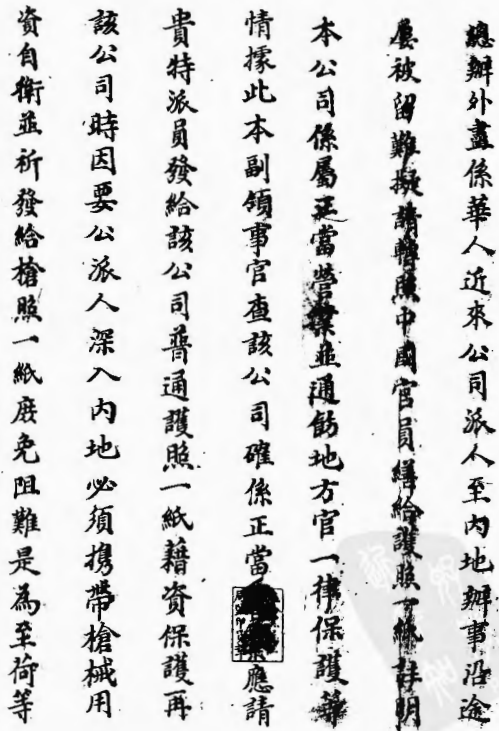 總辦外盡係華人近來公司派人至內地辦事沿途
屢被留難擬請轉照中國官員繕給護照一紙註明
本公司係屬正當營業並通飭地方官一律保護等
情據此本副領事官查該公司確係正當營業應請
貴特派員發給該公司普通護照一紙藉資保護再
該公司時因要公派人深入內地必須攜帶槍械用
資自衛並祈發給槍照一紙庶免阻難是為至荷等